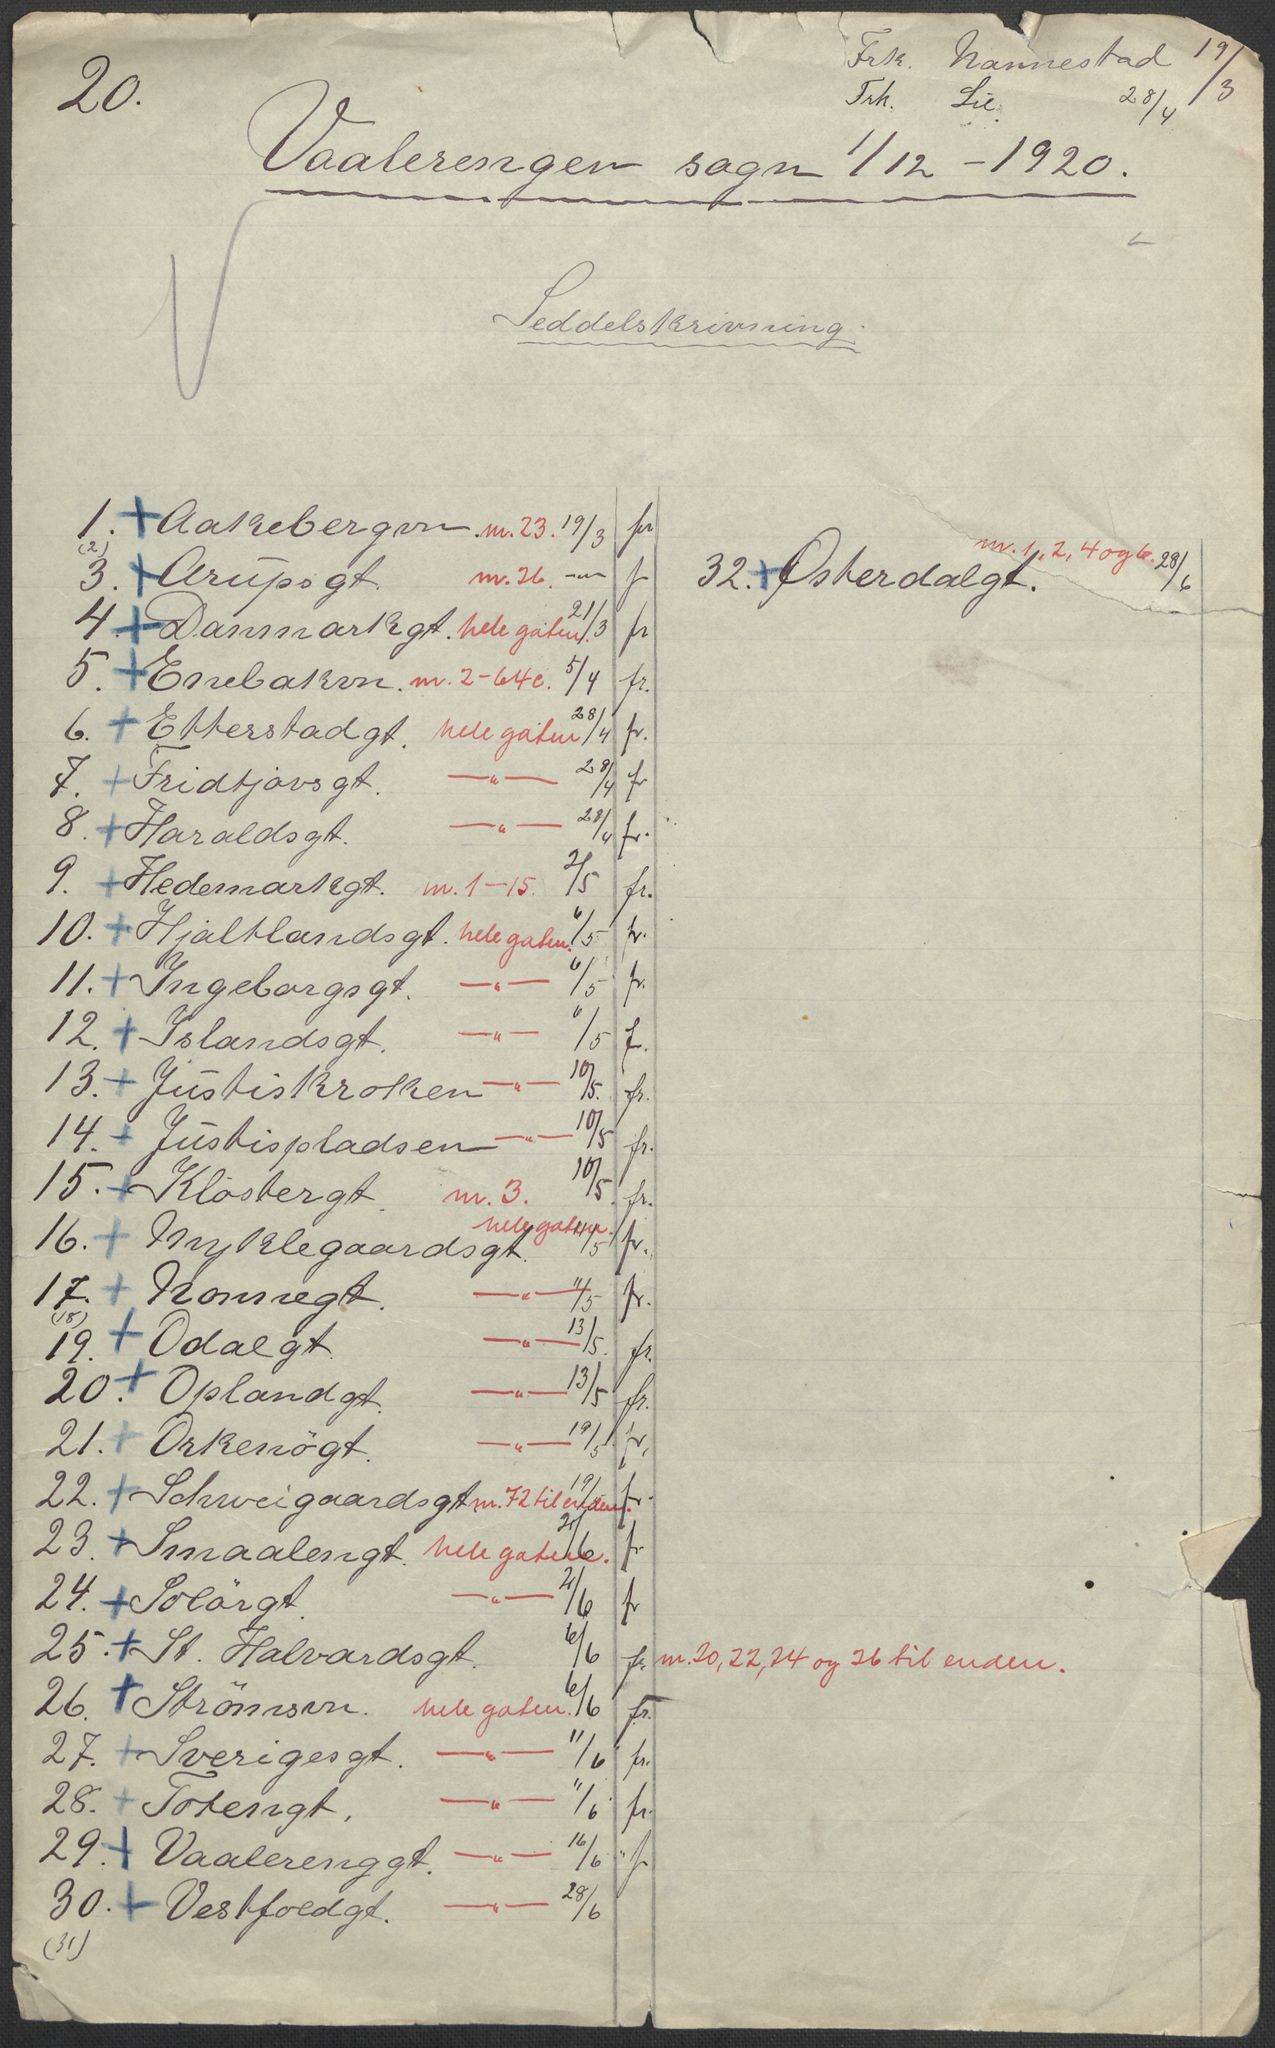 20.
Frk. Nannestad 19/3
Frk. Lie. 28/4
Vaalerengen sogn 1/12 - 1920.
Seddelskrivning.
1. + Aakebergvn. nr. 23. 19/3 fr
(2)
3. + Arupsgt. nr. 26. -"- fr
4. + Danmarkgt. hele gaten. 21/3 fr
5. + Enebakvn. nr. 2-64c. 5/4 fr.
6. + Etterstadgt. hele gaten 28/4 fr.
7. + Fridtjovsgt. -"- 28/4 fr
8. + Haraldsgt. -"- 28/4 fr.
9. + Hedemarkgt. nr. 1-15. 2/5 fr.
10. + Hjaltlandsgt. hele gaten. 6/5 fr.
11. + Ingeborgsgt. -"- 6/5 fr.
12. + Islandsgt. -"- 6/5 fr.
13. + Justiskroken -"- 10/5. fr.
14. + Justispladsen -"- 10/5 fr.
15. + Klosbergt. nr. 3. 10/5. fr.
16. + Nyklegaardsgt. hele gaten. 11/5 fr.
17. + Nonnegt. -"- 11/5 fr.
(18)
19. + Odalgt. -"- 13/5. fr.
20. + Oplandgt. -"- 13/5 fr.
21. + Orkenögt. -"- 19/5 fr.
22. + Schweigaardsgt. nr. 72 til enden. fr.
23. + Smaalengt. hele gatene. fr
24. + Solörgt. -"- 2/6 fr
25. + St. Halvardsgt. 6/6 fr. nr. 20, 22, 24 og 26 til enden.
26. + Strömsvn. hele gaten. 6/6 fr.
27. + Sverigesgt. -"- 11/6 fr.
28. + Totengt. -"- 11/6 fr.
29. + Vaalerenggt. -"- 16/6 fr
30. + Vestfoldgt. -"- 28/6
(31)
32. + Østerdalgt. nr. 1, 2, 4 og 6. 28/6